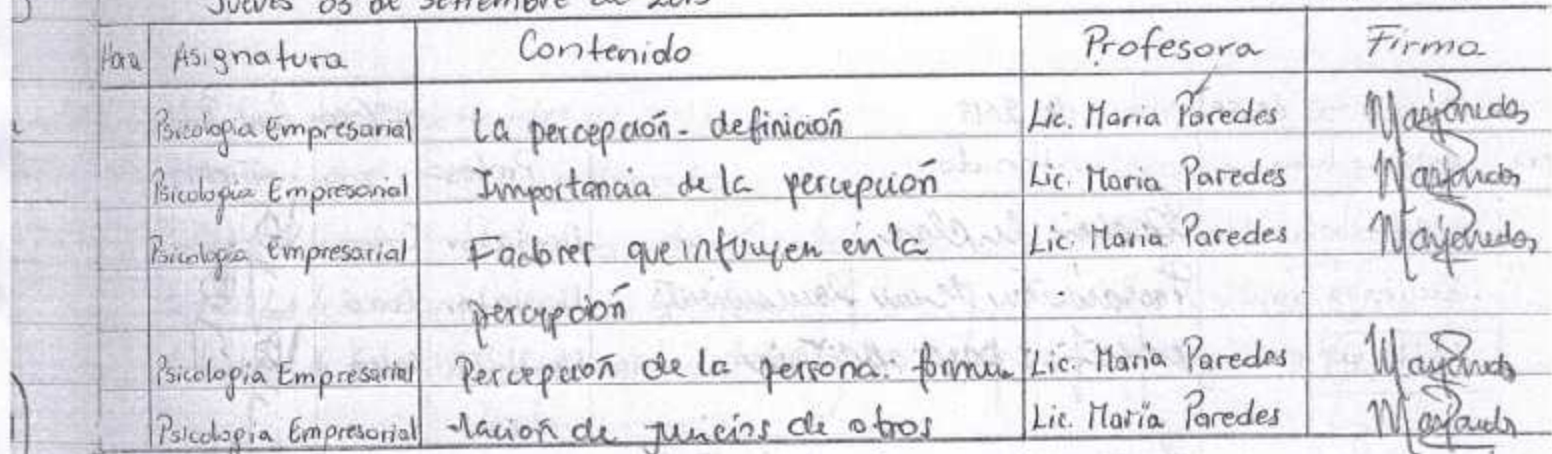 Jueves 03 de Settiembre de 2015
Hora Asignatura Contenido Profesora Firma
Psicología Empresarial La percepción - definición Lic. Maria Paredes
Psicología Empresarial Importancia de la percepción Lic. Maria Paredes
Psicología Empresarial Factores que influyen en la Lic. Maria Paredes
percepción
Psicología Empresarial Percepción de la persona: formu Lic. Maria Paredes
Psicología Empresarial -lación de juicios de otros Lic. María Paredes